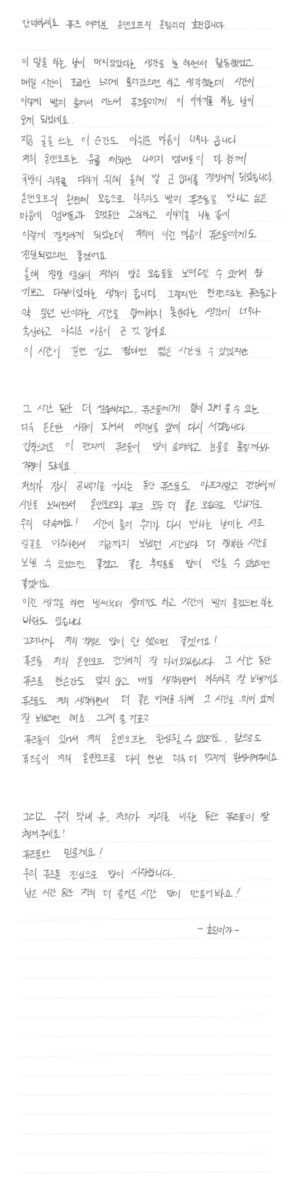 안녕하세요 퓨즈 여러분 온앤오프의 온팀리더 효진입니다.
이 말을 하는 날이 머지않았다는 생각을 늘 하면서 활동했었고
매일 시간이 조금만 느리게 흘러갔으면 하고 생각했는데 시간이
이렇게 빨리 흘러서 어느새 퓨즈들에게 이 이야기를 하는 날이
오게 되었네요.
지금 글을 쓰는 이 순간도 아쉬운 마음이 너무나 큽니다.
저희 온앤오프는 유를 제외한 나머지 멤버들이 다 함께
국방의 의무를 다하기 위해 올해 말 군 입대를 결정하게 되었습니다.
온앤오프의 완전체 모습으로 하루라도 빨리 퓨즈들을 만나고 싶은
마음에 멤버들과 오랫동안 고심하고 이야기를 나눈 끝에
이렇게 결정하게 되었는데 저희의 이런 마음이 퓨즈들에게도
전달되었으면 좋겠어요.
올해 정말 열심히 저희의 많은 모습들을 보여드릴 수 있어서 참
기쁘고 다행이었다는 생각이 듭니다. 그렇지만 한편으로는 퓨즈들과
약 일년 반이라는 시간을 함께하지 못한다는 생각에 너무나
속상하고 아쉬운 마음이 큰 것 같아요.
이 시간이 길면 길고 짧다면 짧은 시간일 수 있겠지만
그 시간 동안 더 성숙해지고, 퓨즈들에게 힘이 되어 줄 수 있는
더욱 든든한 사람이 되어서 여러분들 앞에 다시 서겠습니다.
갑작스러운 이 편지에 퓨즈들이 많이 슬퍼하고 눈물을 흘릴까봐
걱정이 되네요.
저희가 잠시 공백기를 가지는 동안 퓨즈들도 아프지말고 건강하게
시간을 보내면서 온앤오프와 퓨즈 모두 더 좋은 모습으로 만나기로
우리 약속해요! 시간이 흘러 우리가 다시 만나는 날에는 서로
얼굴을 마주하면서 지금까지 보냈던 시간보다 더 행복한 시간을
보낼 수 있었으면 좋겠고 좋은 추억들을 많이 만들 수 있었으면
좋겠어요.
이런 생각을 하면 벌써부터 설레기도 하고 시간이 빨리 흘렀으면 하는
바람도 있습니다.
그러니까 저희 걱정은 많이 안 했으면 좋겠어요!
퓨즈들, 저희 온앤오프 건강하게 잘 다녀오겠습니다. 그 시간 동안
퓨즈를 한순간도 잊지 않고 매일 생각하면서 하루하루 잘 보낼게요.
퓨즈들도 저희 생각하면서 더 좋은 미래를 위해 그 시간을 의미 있게
잘 보냈으면 해요.
퓨즈들이 있어서 저희 온앤오프는 완성될 수 있었어요. 앞으로도
퓨즈들이 저희 온앤오프를 다시 한번 더욱 더 멋지게 완성시켜주세요.
그리고 우리 막내 유, 저희가 자리를 비우는 동안 퓨즈들이 잘
챙겨주세요!
퓨즈들만 믿을게요!
우리 퓨즈들 진심으로 많이 사랑합니다.
남은 시간 동안 저희 더 즐거운 시간 많이 만들어봐요!
- 효진이가 -